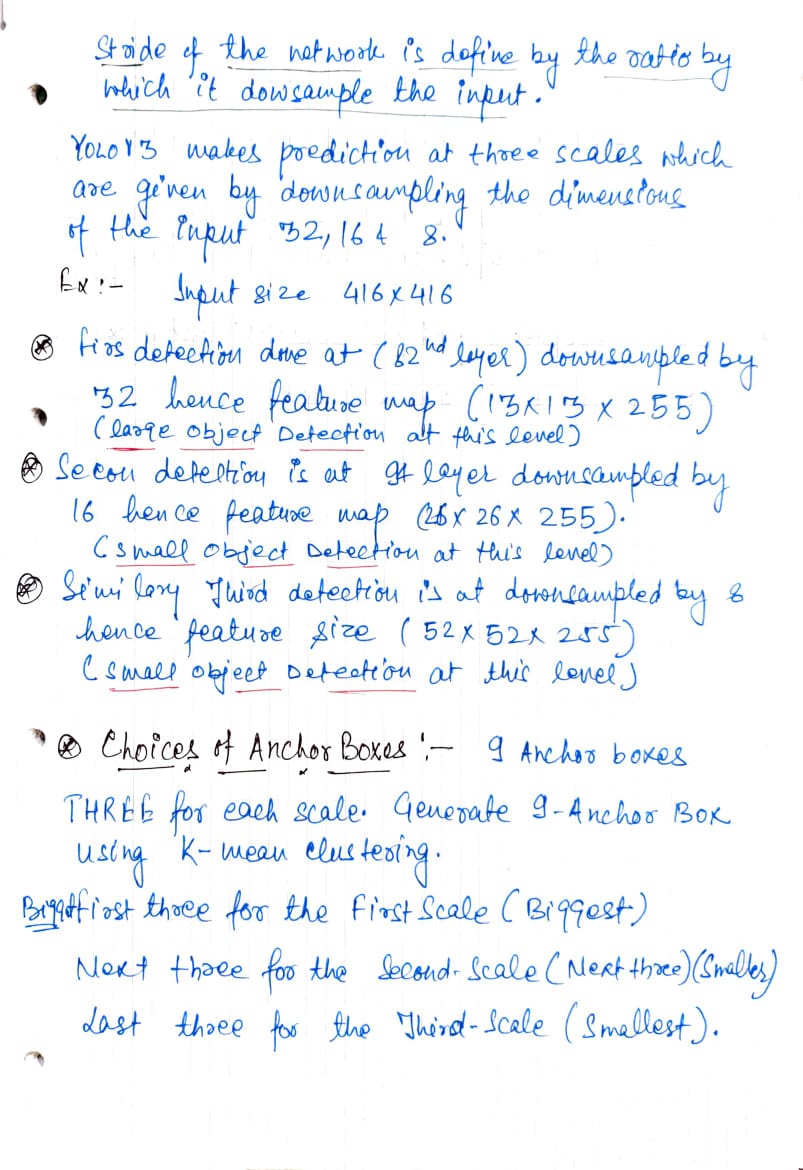 Stride of the network is define by the ratio by
which it dowsample the input.
YOLOV3 makes prediction at three scales which
are given by downsampling the dimensions
of the Input 32, 16 & 8.
Ex :- Input size 416 x 416
firs detection done at (82nd layer) downsampled by
32 hence feature map (13x13 x 255)
(large object Detection att this level)
Secon detection is at 94 layer downsampled by
16 hence feature map (26 x 26 x 255).
(small object Detection at this level)
Similary Third detection is at downsampled by 8
hence feature size (52 x 52 x 255)
(small object Detection at this level)
Choices of Anchor Boxes :- 9 Anchor boxes
THREE for each scale. Generate 9-Anchor Box
using K-mean clustering.
first three for the First Scale (Biggest)
Next three for the Second-Scale (Next three) (Smaller)
Last three for the Third-Scale (Smallest).